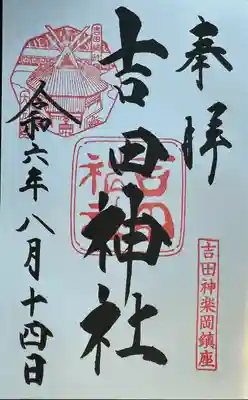 奉拝
吉田神楽岡鎮座
吉田神社
吉田神社
令和六年八月十四日
吉田神社